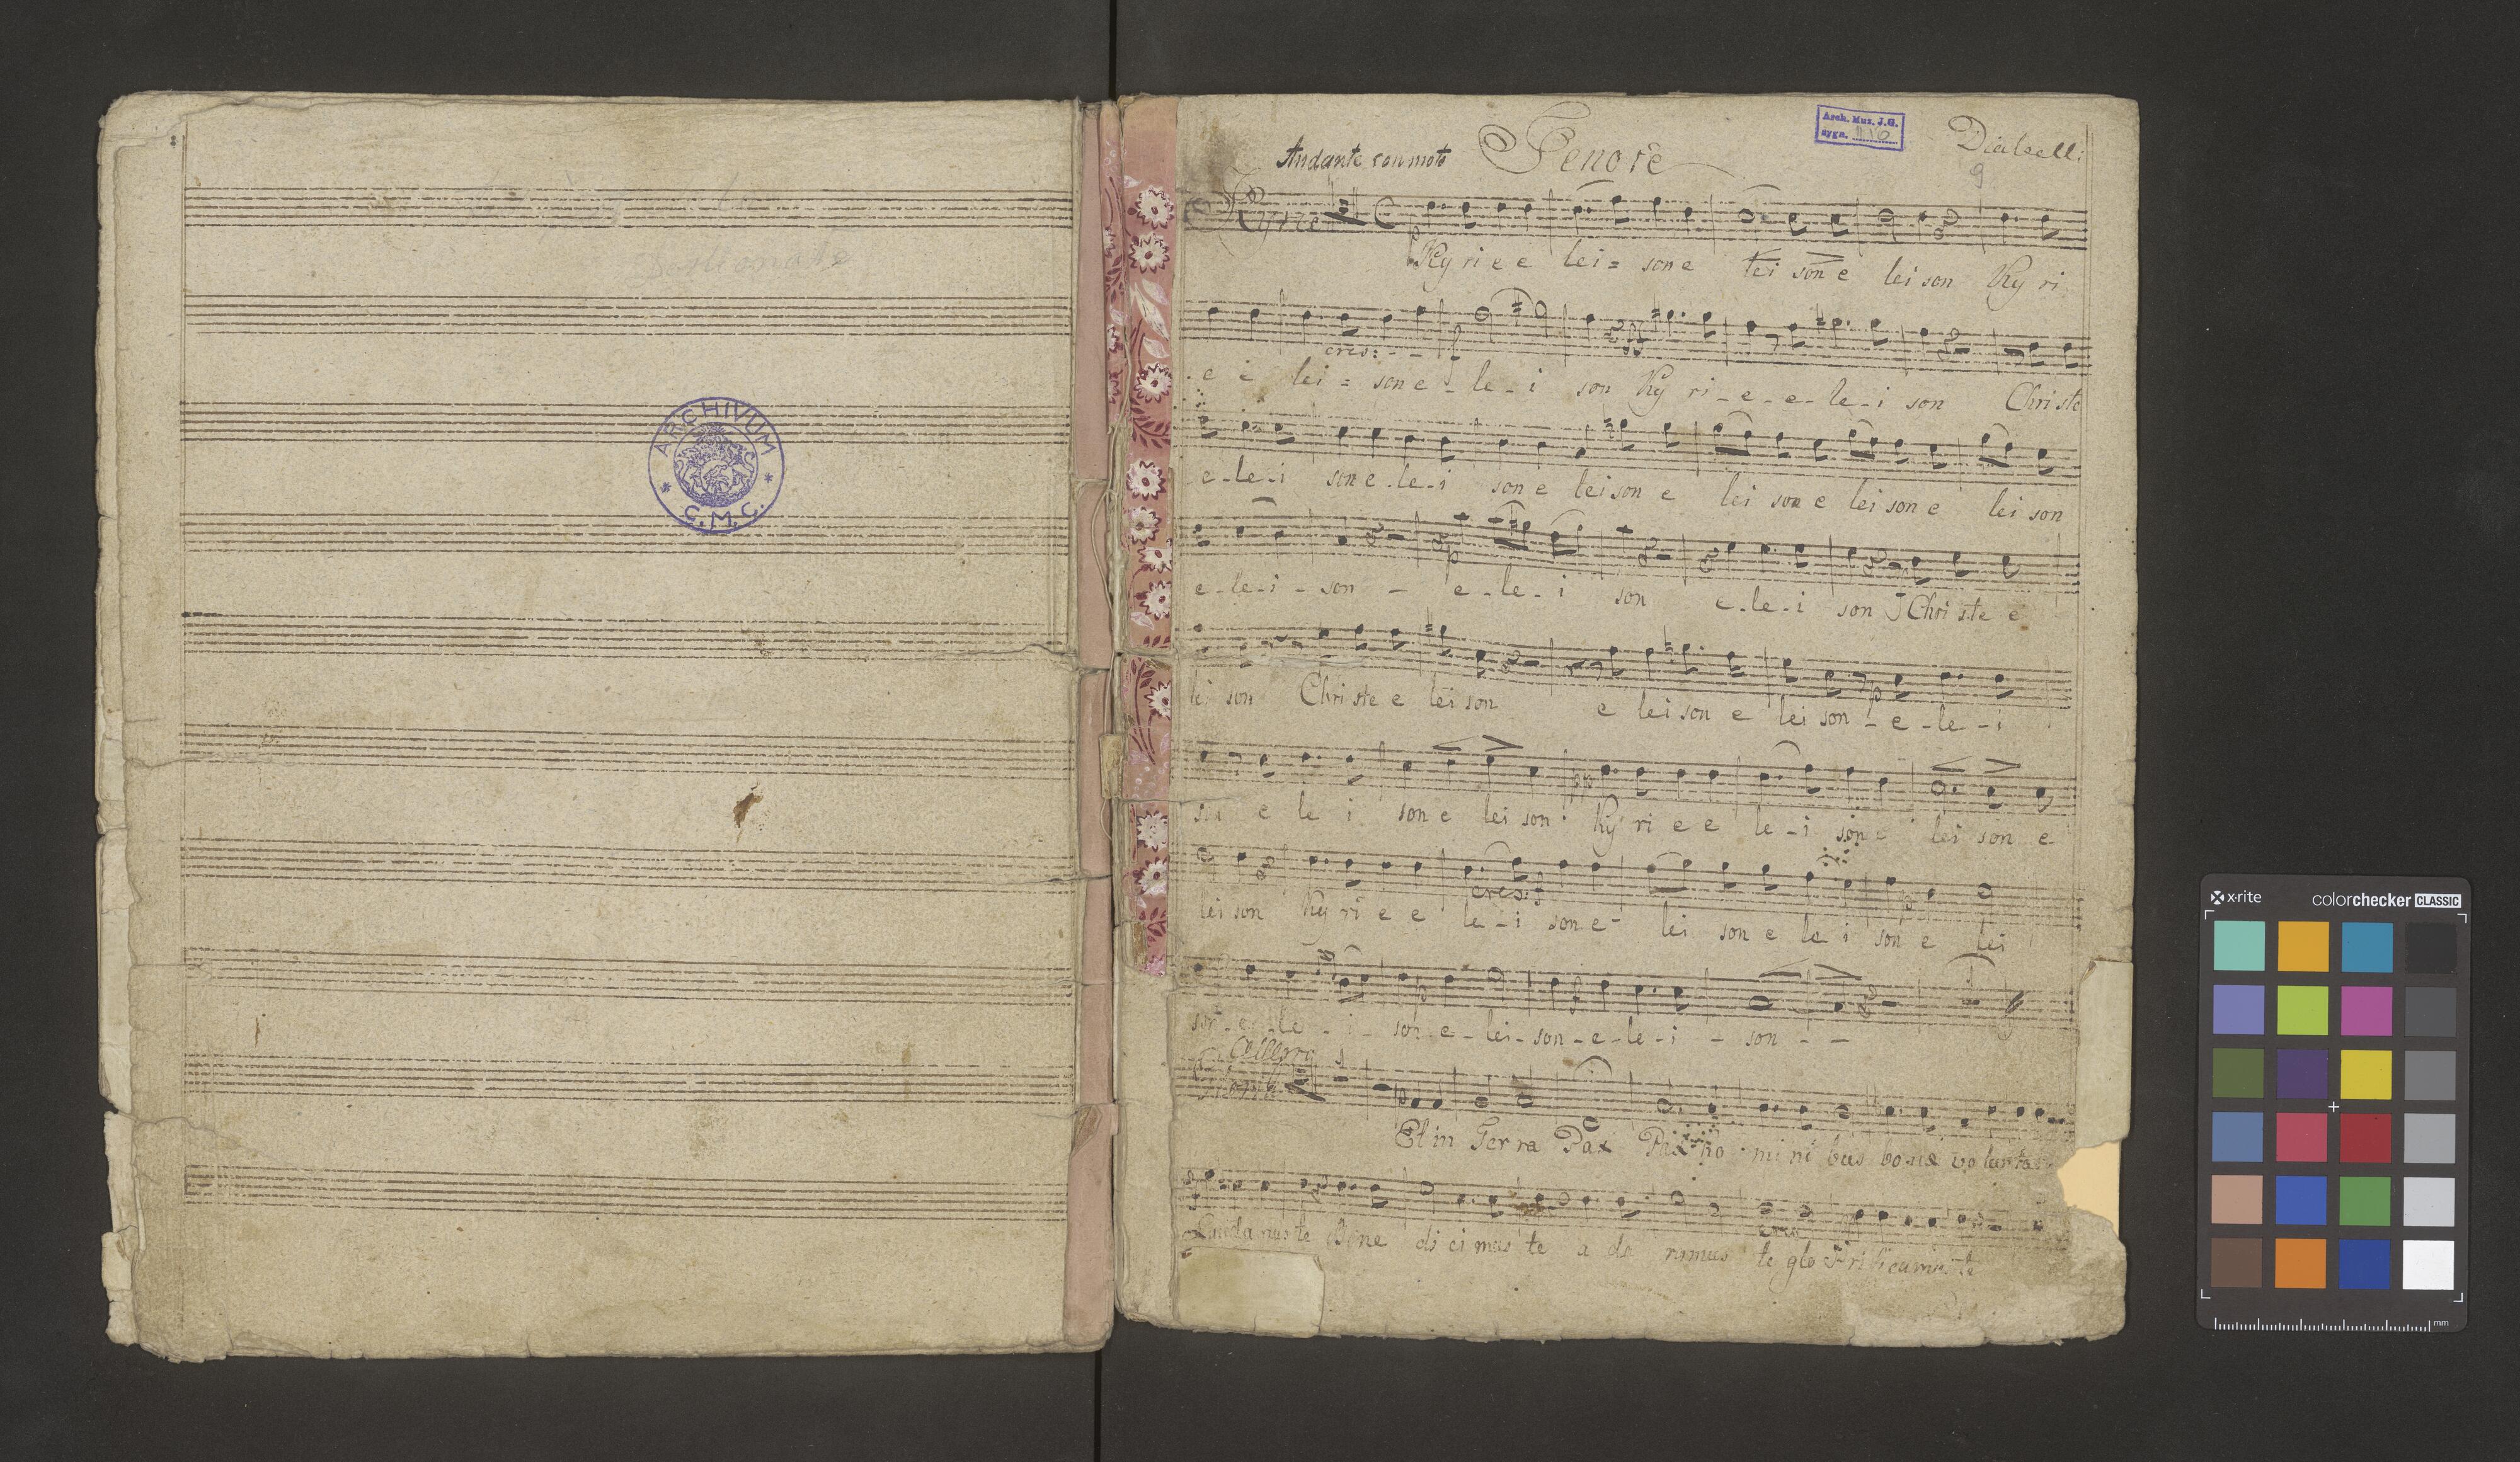 ARCHIVUM
C. M. C.
Arch. Muz. J.G.
sygn.
Andante con moto
Tenore
9
Kyrie
Ky ri e e lei = son e lei son e lei son Ky ri
cres:
e e lei = son e - le - i son Ky ri - e - e - le - i son Christe
e - le - i son e - le - i son e lei son e lei son e lei son e lei son
e - le - i - son - e - le - i son e - le - i son Chri ste e
lei son Chri ste e lei son e lei son e lei son - e - le - i
son e le i son e lei son Ky ri e e le - i son e lei son e
cres:
lei son Ky ri e e le - i son e - lei son e le i son e lei
son - e - le - i - son - e - lei - son - e - le - i - son - -
Gloria
Et in Ter ra Pax Pax ho mi ni bus bonæ voluntas
Lauda mus te Bene di ci mus te a do ramus te glo ri
x·rite
colorchecker CLASSIC
mm